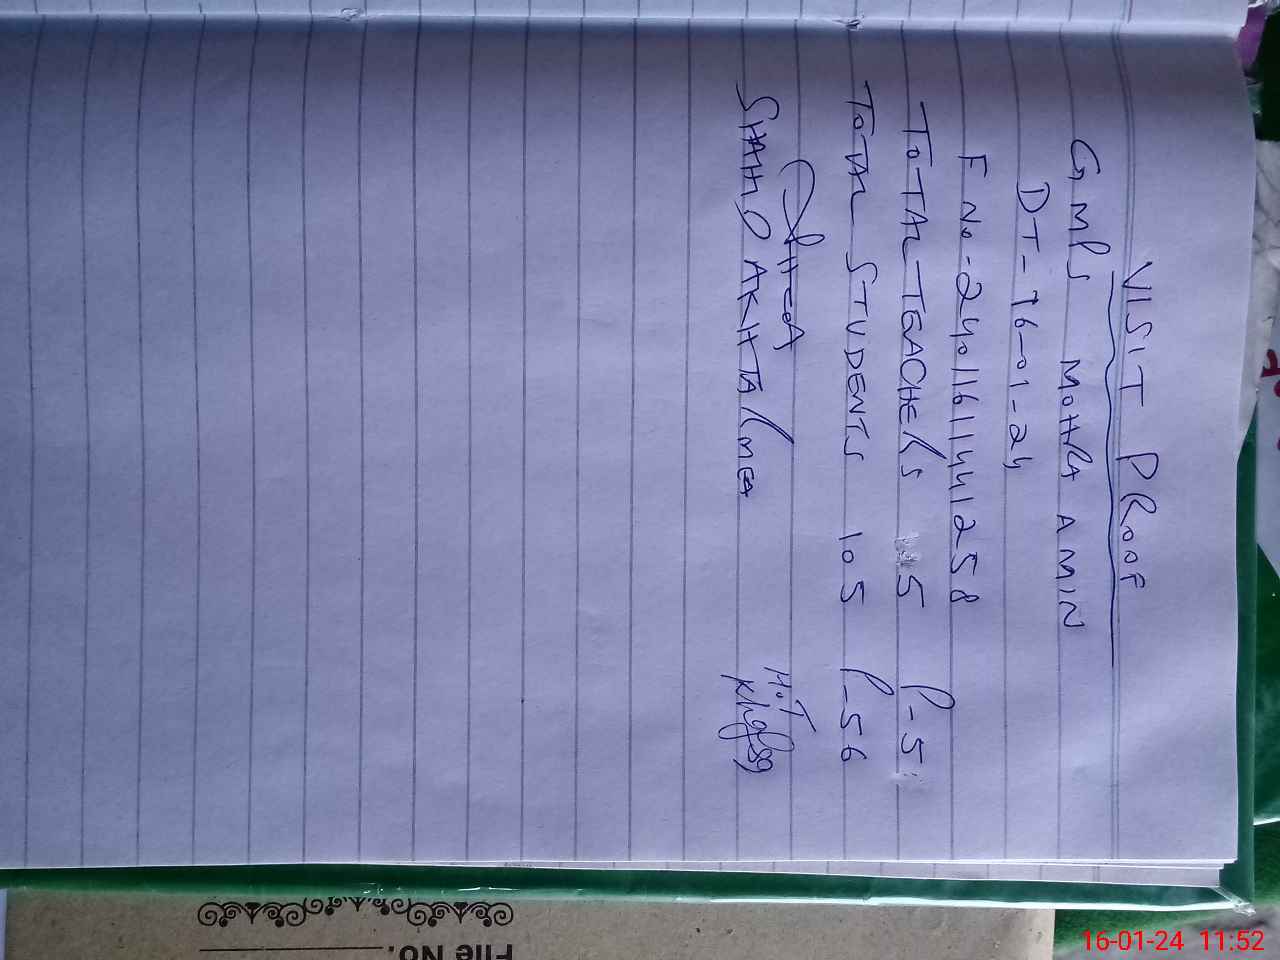 VISIT PROOF
GMPS MOHRA AMIN
DT-16-01-24
F No-240116114441258
TOTAL TEACHERS 5 P-5
TOTAL STUDENTS 105 P-56
H.O.T
SHAH AKHTAR MEA
File No.
16-01-24 11:52